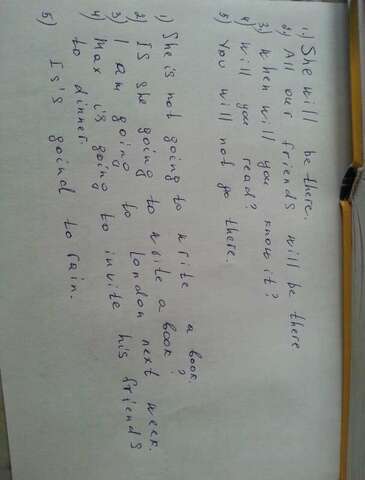 1.) She will be there.
2) All our friends will be there
3) when will you know it?
4) will you read?
5) You will not go there.
1) She is not going to write a book.
2) Is she going to write a book?
3) I am going to London next week.
4) Max is going to invite his friends
to dinner.
5) Is's goind to rain.